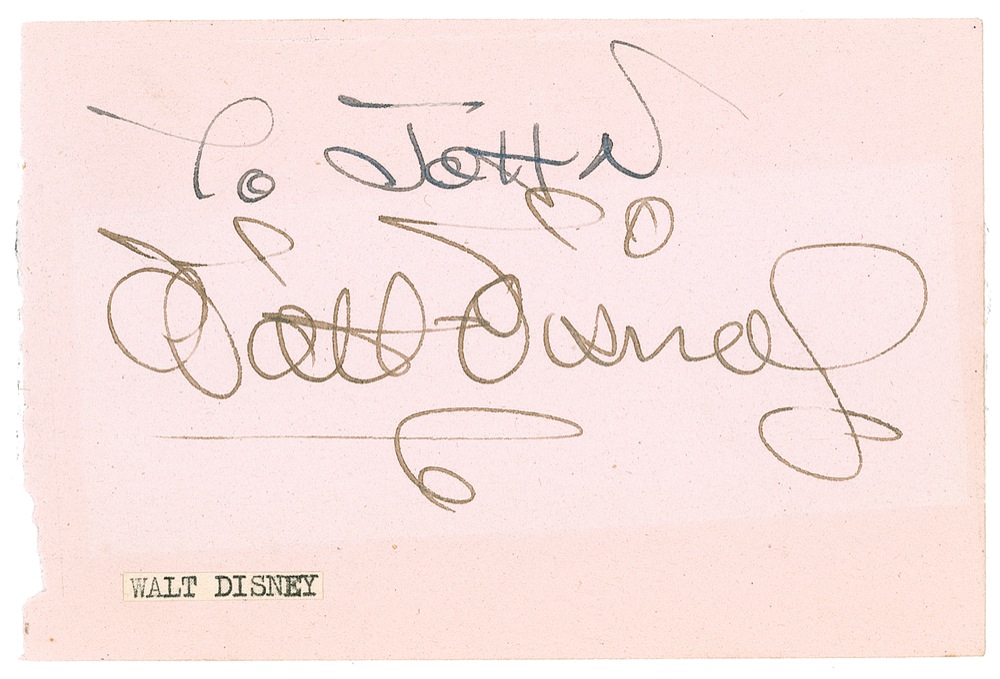 To JOHN
Walt Disney
WALT DISNEY